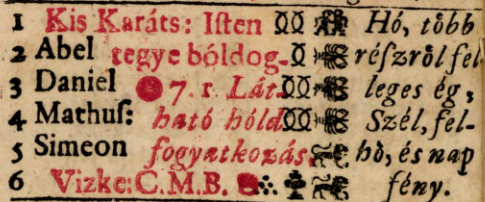 1 Kis Karáts: Iſten Hó, több
2 Abel tegye bóldog- réſzröl fel
3 Daniel 7. r. Lát- leges ég,
4 Mathuſ: ható hóld Szél, fel-
5 Simeon fogyatkozás. hò, és nap
6 Vizke: C. M. B. fény.